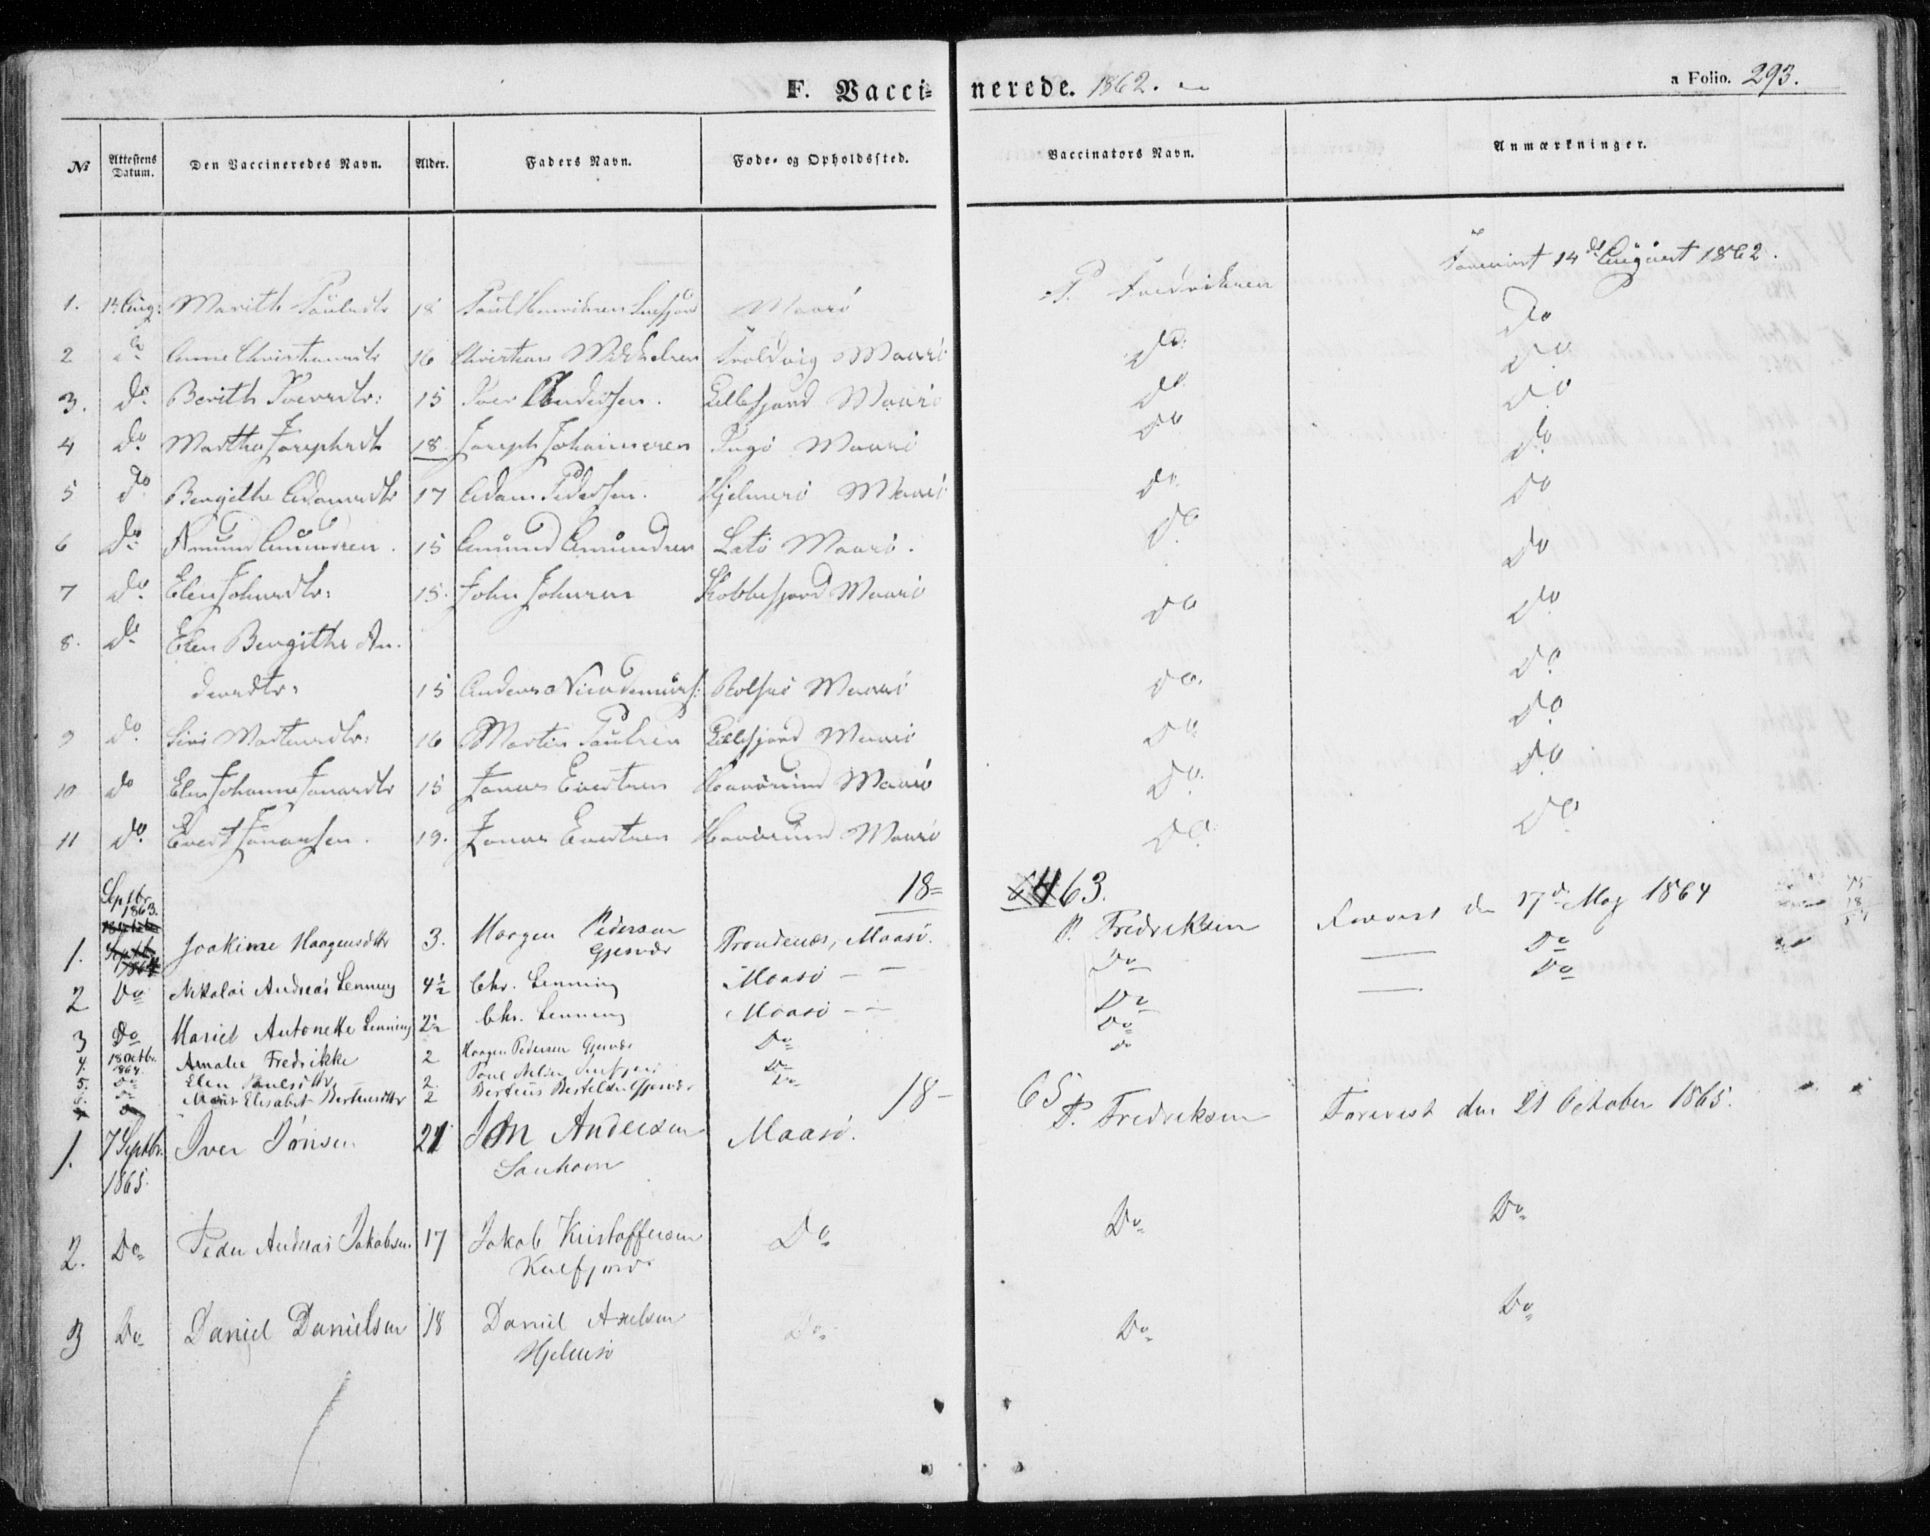 F. Vacci- nerede. 1862.
a Folio. 293.
№ Attestens Datum. Den Vaccineredes Navn. Alder. Faders Navn. Føde- og Opholdssted. Vaccinators Navn. Anmærkninger.
Foreviist 14de August 1862.
1. Aug: Marith Paulsdtr 18 Paul Henriksen Maasö P. Fredriksen Do
2 do Anne Christiansdtr 16 Christian Mikkelsen Troldvig Maasö Do Do
3. Do Berith Iversdtr: 15 Iver Andersen. Lillefjord Maasö Do Do
4 Do Martha Josephsdtr 18 Joseph Johannesen Ingö Maasö Do Do
5 Do Bergithe Adamsdtr 17 Adam Pedersen. Hjelmsö Maasö Do Do
6 Do Amund Amundsen. 15 Amund Amundsen Latö Maasö. Do Do
7 Do Elen Johnsdtr: 15. John Johnsen Kobbefjord Maasö Do Do
8. Do Elen Bergithe An-
dersdtr: 15 Anders Nicodemuss: Rolfsö Maasö Do Do
9 Do Siri Martinsdtr: 16 Martin Paulsen Lillefjord Maasö Do Do
10 do Elen Johanne Jonasdtr 15 Jonas Evertsen Havösund Maasö Do Do
11 Do Evert Jonassen. 19. Jonas Evertsen Havösund Maasö Do Do
18= 63.
Septbr 1863.
1. Joakime Haagensdttr 3. Haagen Pedersen Gjesvær Trondenæs, Maasö. P. Fredriksen Forevist den 17de May 1864
2 Do Nikolai Andreas Lenning 4½ Chr. Lenning Maasö — — Do Do
3 Do Mariel Antonette Lenning 2½ Chr. Lenning Maasö — — Do Do
4. 18 Octbr. 1864. Amalie Fredrikke 2 Haagen Pedersen Gjesvær Do Do
5. Do Elen Paulsdttr 2. Do do
6. Do Marit Elisabet Bertensdttr 2 Berteus Bertelsen Gjesvær Do
18- 65
1. 7 Septbr. 1865. Iver Jonsen 21 Jon Andersen Sanhavn Maasö. P. Fredriksen Forevist den 21 October 1865.
2. Do Peder Andreas Jakobsen 17 Jakob Kristoffersen Kulfjord Do Do Do
3 Do Daniel Danielsen 18 Daniel Axelsen Hjelmsö Do Do Do